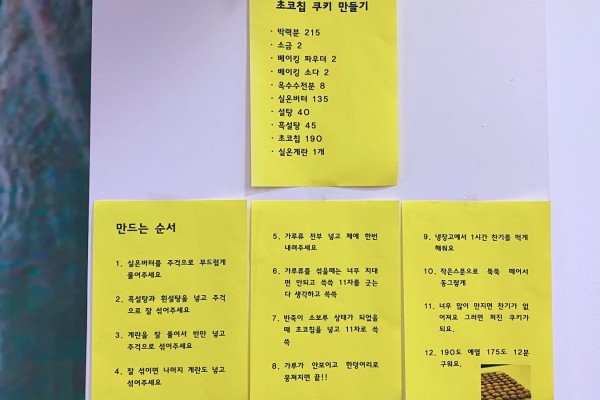 초코칩 쿠키 만들기
· 박력분 215
· 소금 2
· 베이킹 파우더 2
· 베이킹 소다 2
· 옥수수전분 8
· 실온버터 135
· 설탕 40
· 흑설탕 45
· 초코칩 190
· 실온계란 1개
만드는 순서
1. 실온버터를 주걱으로 부드럽게
풀어주세요
2. 흑설탕과 흰설탕을 넣고 주걱
으로 잘 섞어주세요
3. 계란을 잘 풀어서 반만 넣고
주걱으로 섞어주세요
4. 잘 섞이면 나머지 계란도 넣고
섞어주세요
5. 가루류 전부 넣고 체에 한번
내려주세요
6. 가루류를 섞을때는 너무 치대
면 안되고 쓱쓱 11자를 긋는
다 생각하고 쓱쓱
7. 반죽이 소보루 상태가 되었을
때 초코칩을 넣고 11자로 쓱
쓱
8. 가루가 안보이고 한덩어리로
뭉쳐지면 끝!!
9. 냉장고에서 1시간 찬기를 먹게
해줘요
10. 작은스푼으로 뚝뚝 떼어서
동그랗게
11. 너무 많이 만지면 찬기가 없
어져요 그러면 퍼진 쿠키가
되요.
12. 190도 예열 175도 12분
구워요.